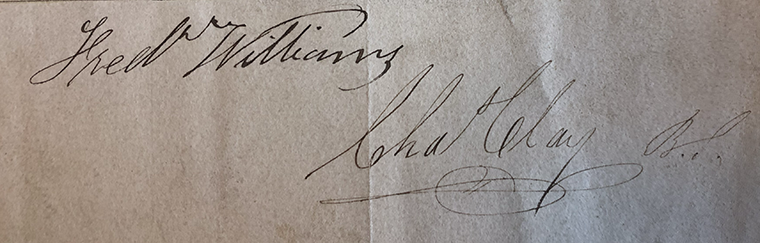 Fredk Williams
Chas Clay